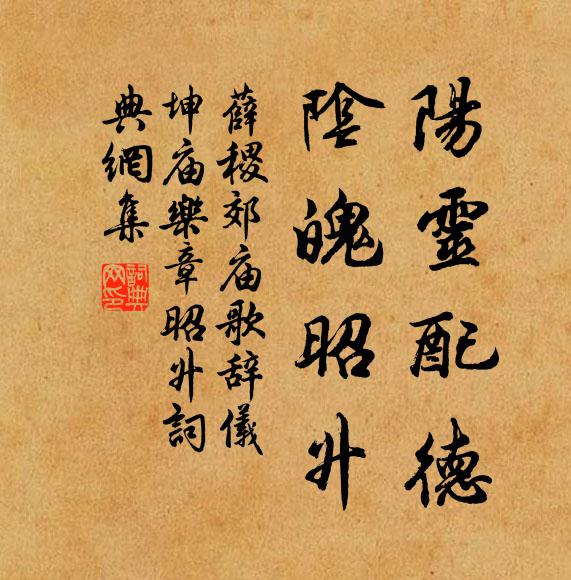 陽靈配德
陰魄昭升
薛稷郊庙歌辞儀
坤庙樂章昭升詞
典網集
詞典網印